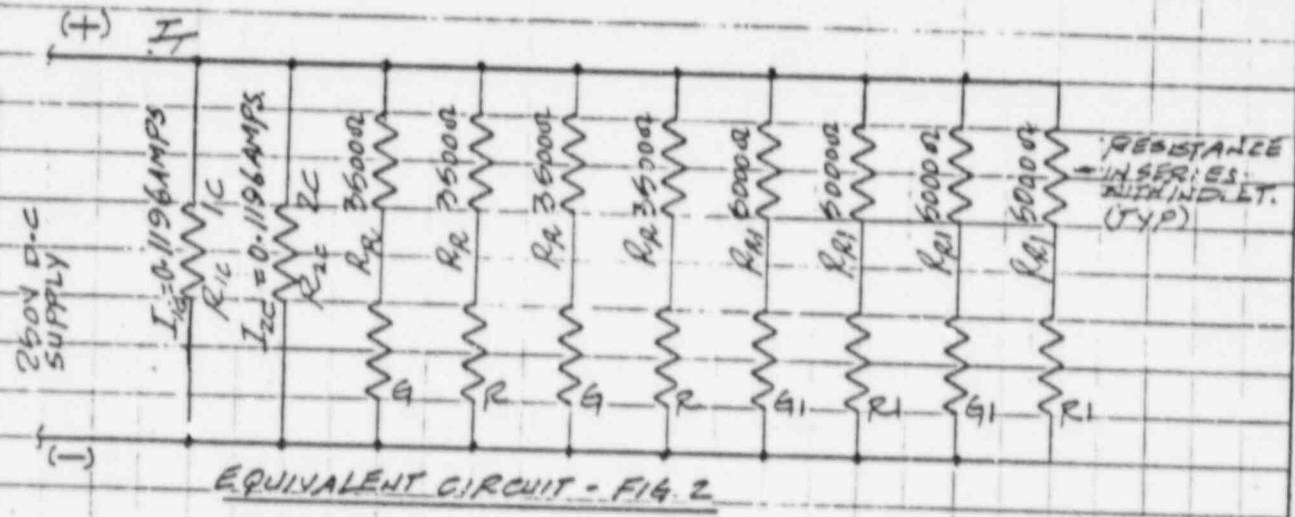 (+) I_T
250V D.C
SUPPLY
I_1C=0.1196AMPS
R_1C 1C
I_2C=0.1196AMPS
R_2C 2C
R_R 3500Ω
R_R 3500Ω
R_R 3500Ω
R_R 3500Ω
R_R1 5000Ω
R_R1 5000Ω
R_R1 5000Ω
R_R1 5000Ω
RESISTANCE
IN SERIES
WITH IND. LT.
(TYP)
G R G R G1 R1 G1 R1
(-)
EQUIVALENT CIRCUIT - FIG. 2